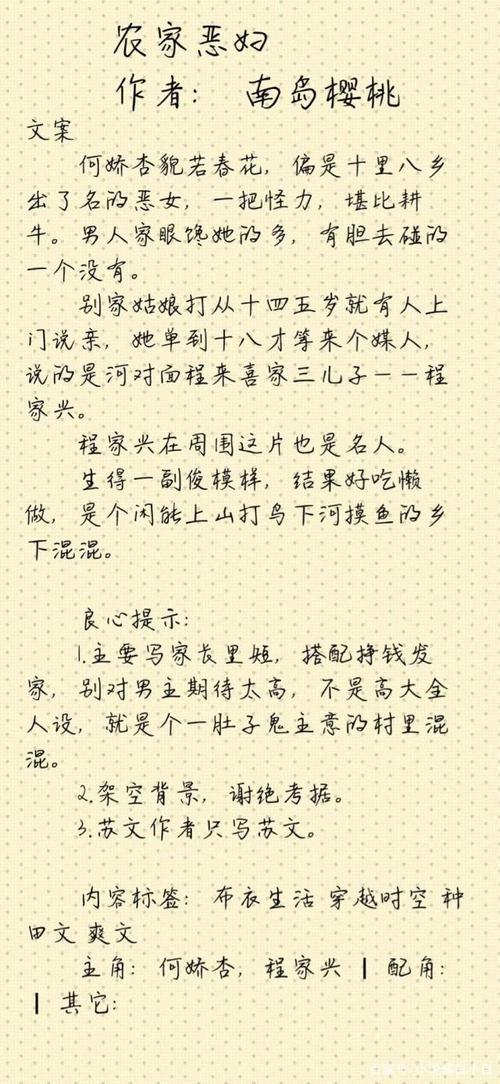 农家恶妇
作者： 南岛樱桃
文案
何娇杏貌若春花，偏是十里八乡
出了名的恶女，一把怪力，堪比耕
牛。男人家眼馋她的多，有胆去碰的
一个没有。
别家姑娘打从十四五岁就有人上
门说亲，她单到十八才等来个媒人，
说的是河对面程来喜家三儿子——程
家兴。
程家兴在周围这片也是名人。
生得一副俊模样，结果好吃懒
做，是个闲能上山打鸟下河摸鱼的乡
下混混。
良心提示：
1.主要写家长里短，搭配挣钱发
家，别对男主期待太高，不是高大全
人设，就是个一肚子鬼主意的村里混
混。
2.架空背景，谢绝考据。
3.苏文作者只写苏文。
内容标签：布衣生活 穿越时空 种
田文 爽文
主角：何娇杏，程家兴 ┃ 配角：
┃ 其它：